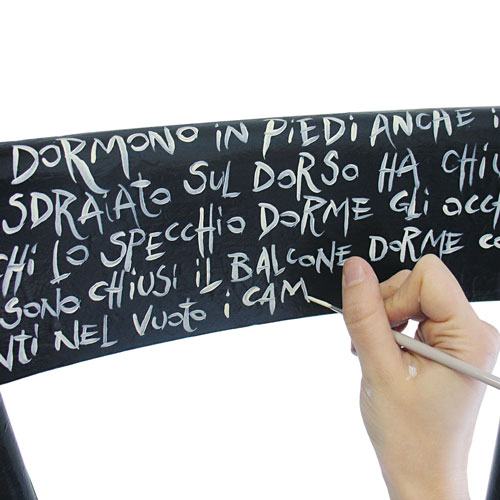 DORMONO iN PiEDi ANCHE i
SDRAiATO SUL DORSO HA CHiU
CHi LO SPECCHiO DORME GLi OCCH
SONO CHiUSi iL BALCONE DORME CO
NTi NEL VUOTO i CAM